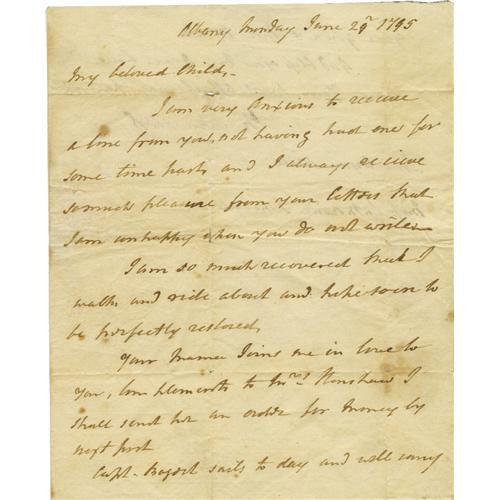 Albany Monday June 29th 1795
My beloved Child,-
I am very Anxious to receive
a line from you, not having had one for
some time past and I always receive
so much pleasure from your letters that
I am unhappy when you do not write.
I am so much recovered that I
walk and ride about and hope soon to
be perfectly restored,
Your Mama Joins me in love to
You, Compliments to Mrs I
shall send her an order for money by
next post
Capt. sails to day and will carry